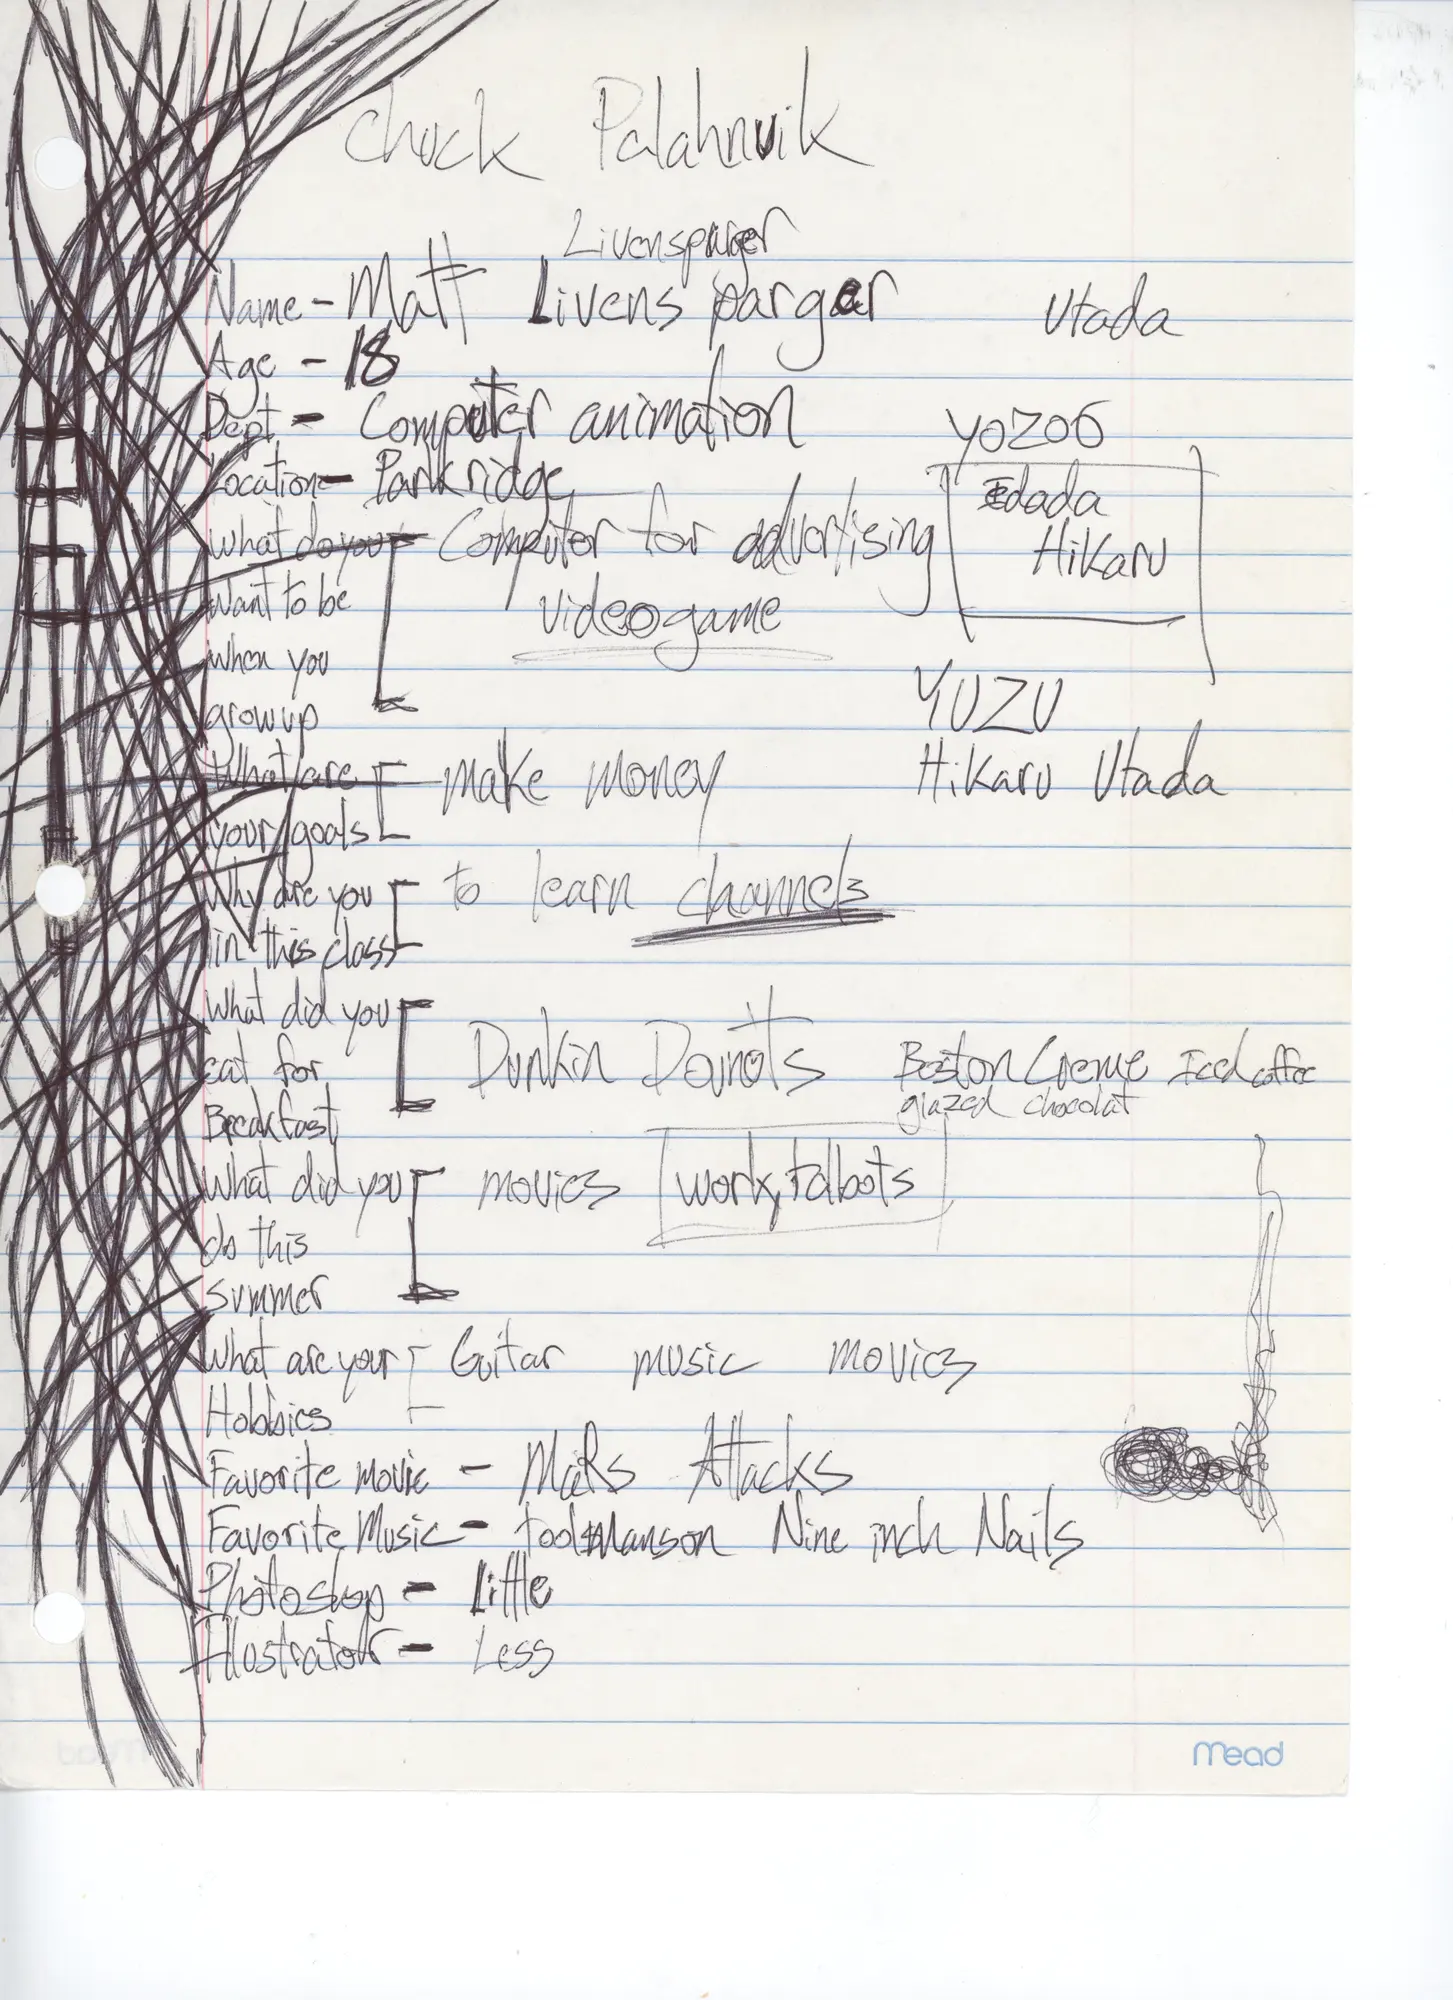 Chuck Palahnuik
Livensparger
Name - Matt Livens parger
Utada
Age - 18
Dept - Computer animation
YOZOG
Location - Parkridge
Edada
Hikaru
What do you want to be when you grow up
Computer for advertising
videogame
YUZU
Hikaru Utada
What are your goals
make money
Why are you in this class
to learn channels
What did you eat for Breakfast
Dunkin Donots
Boston Creme Iced coffee
glazed chocolat
What did you do this summer
movies work, talbots
What are your Hobbies
Guitar music movies
Favorite movie - MaRs Attacks
Favorite Music - tool Manson Nine inch Nails
Photoshop - Little
Illustrator - Less
Mead